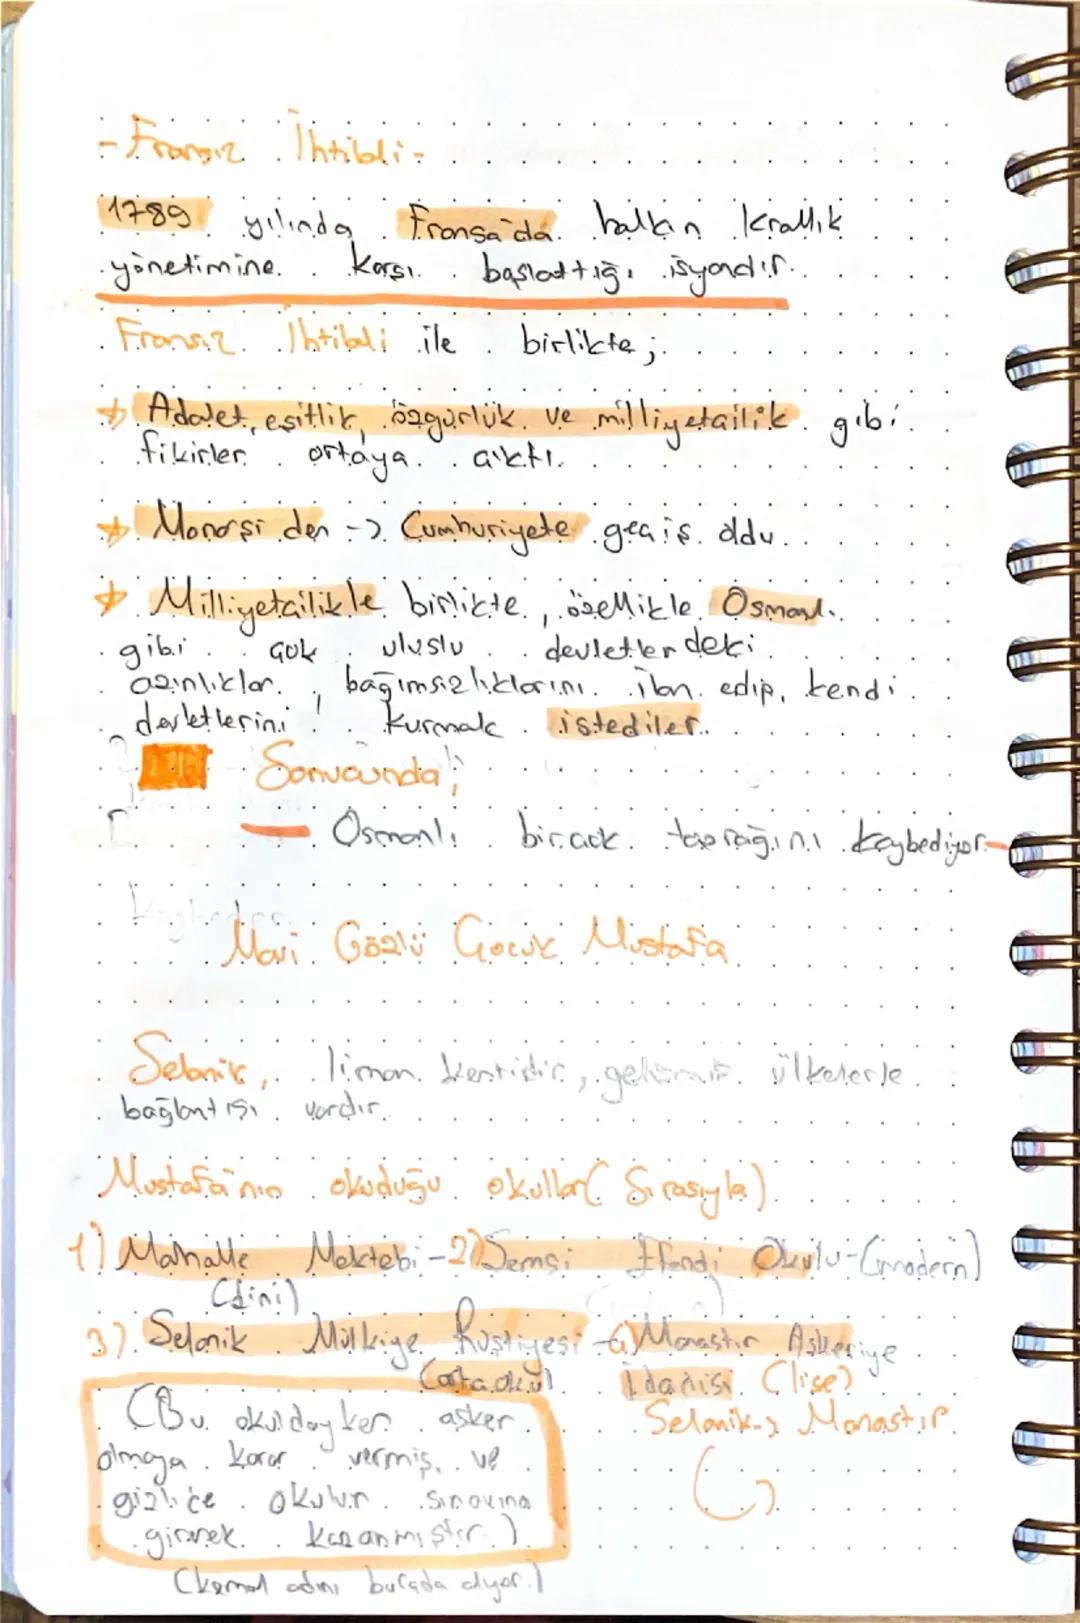 -Fransız İhtilali-
1789 yılında Fransa'da halkın krallık
yönetimine karşı başlattığı isyandır.
Fransız İhtilali ile birlikte;
Adalet, eşitlik, özgürlük ve milliyetçilik gibi
fikirler ortaya çıktı.
Monarşi den -> Cumhuriyete geçiş oldu.
Milliyetçilikle birlikte, özellikle Osmanlı
gibi çok uluslu devletlerdeki
azınlıklar, bağımsızlıklarını ilan edip, kendi
devletlerini kurmak istediler.
Sonucunda;
— Osmanlı birçok toprağını kaybediyor.—
Mavi Gözlü Çocuk Mustafa
Selanik, liman kentidir, gelişmiş ülkelerle
bağlantısı vardır.
Mustafa'nın okuduğu okullar( Sırasıyla)
1) Mahalle Mektebi -2) Şemsi Efendi Okulu-(modern)
(dini)
3) Selanik Mülkiye Rüştiyesi -4) Manastır Askeriye
(ortaokul İdadisi (lise)
Selanik-> Manastır
(Bu okuldayken asker
olmaya karar vermiş ve
gizlice okulun sınavına
girerek kazanmıştır.)
(kemal adını burada alıyor.)